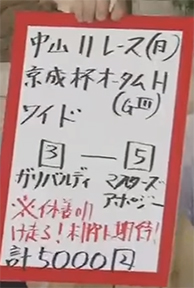 中山11レース(日)
京成杯オータムH
(GⅢ)
ワイド
3 — 5
ガリバルディ マスターズ
アポロジー
※休養明
け走る!未勝に期待!
計5000円